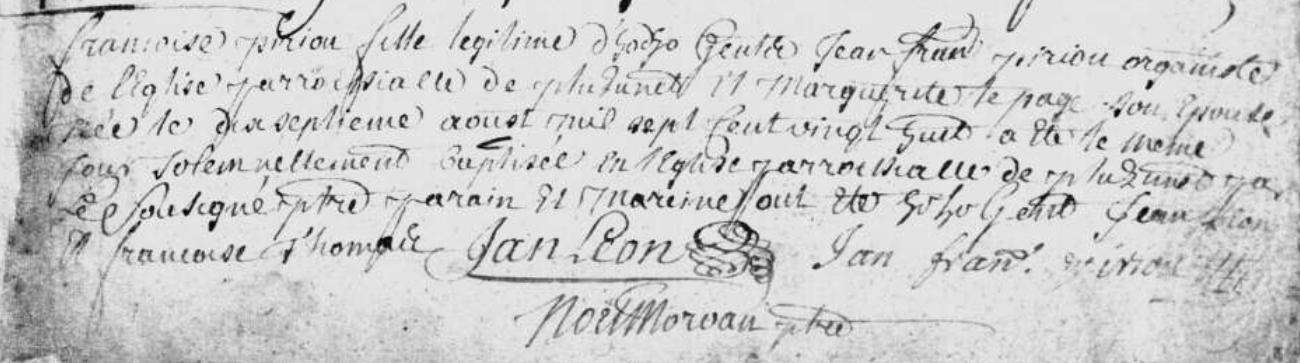 francoise piriou fille legitime d'hoho Gents Jean fran piriou organiste
de l'Eglise parroissialle de pluzunet Et Marguerite le page son Epouse
Née le dix septieme aoust mil sept Cent vingt huit a Ete le meme
jour solemnellement baptisée En l'Eglise parroissialle de pluzunet par
Le Sousigné ptre parain Et Mareine ont Ete hoho Gents Jean Leon
Et francoise
Jan Leon
Jan fran. piriou
Noel Morvan ptre